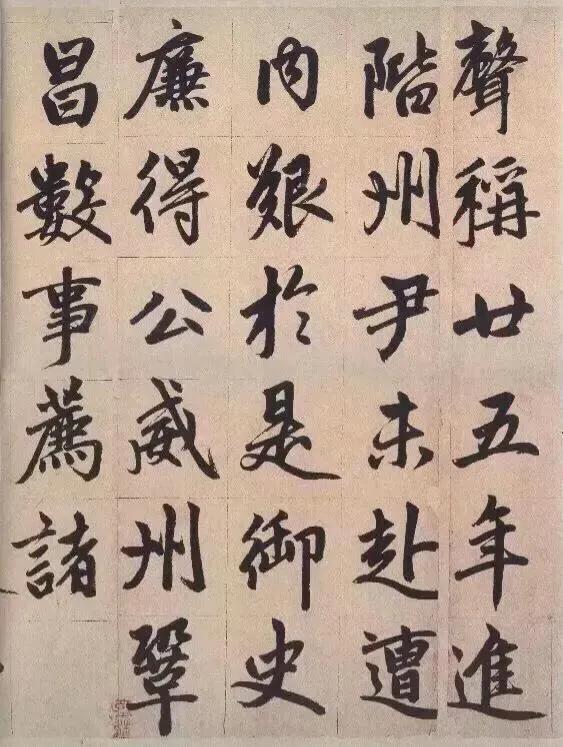 聲稱廿五年進
階州尹未赴遭
內艱於是御史
廉得公威州鞏
昌數事薦諸